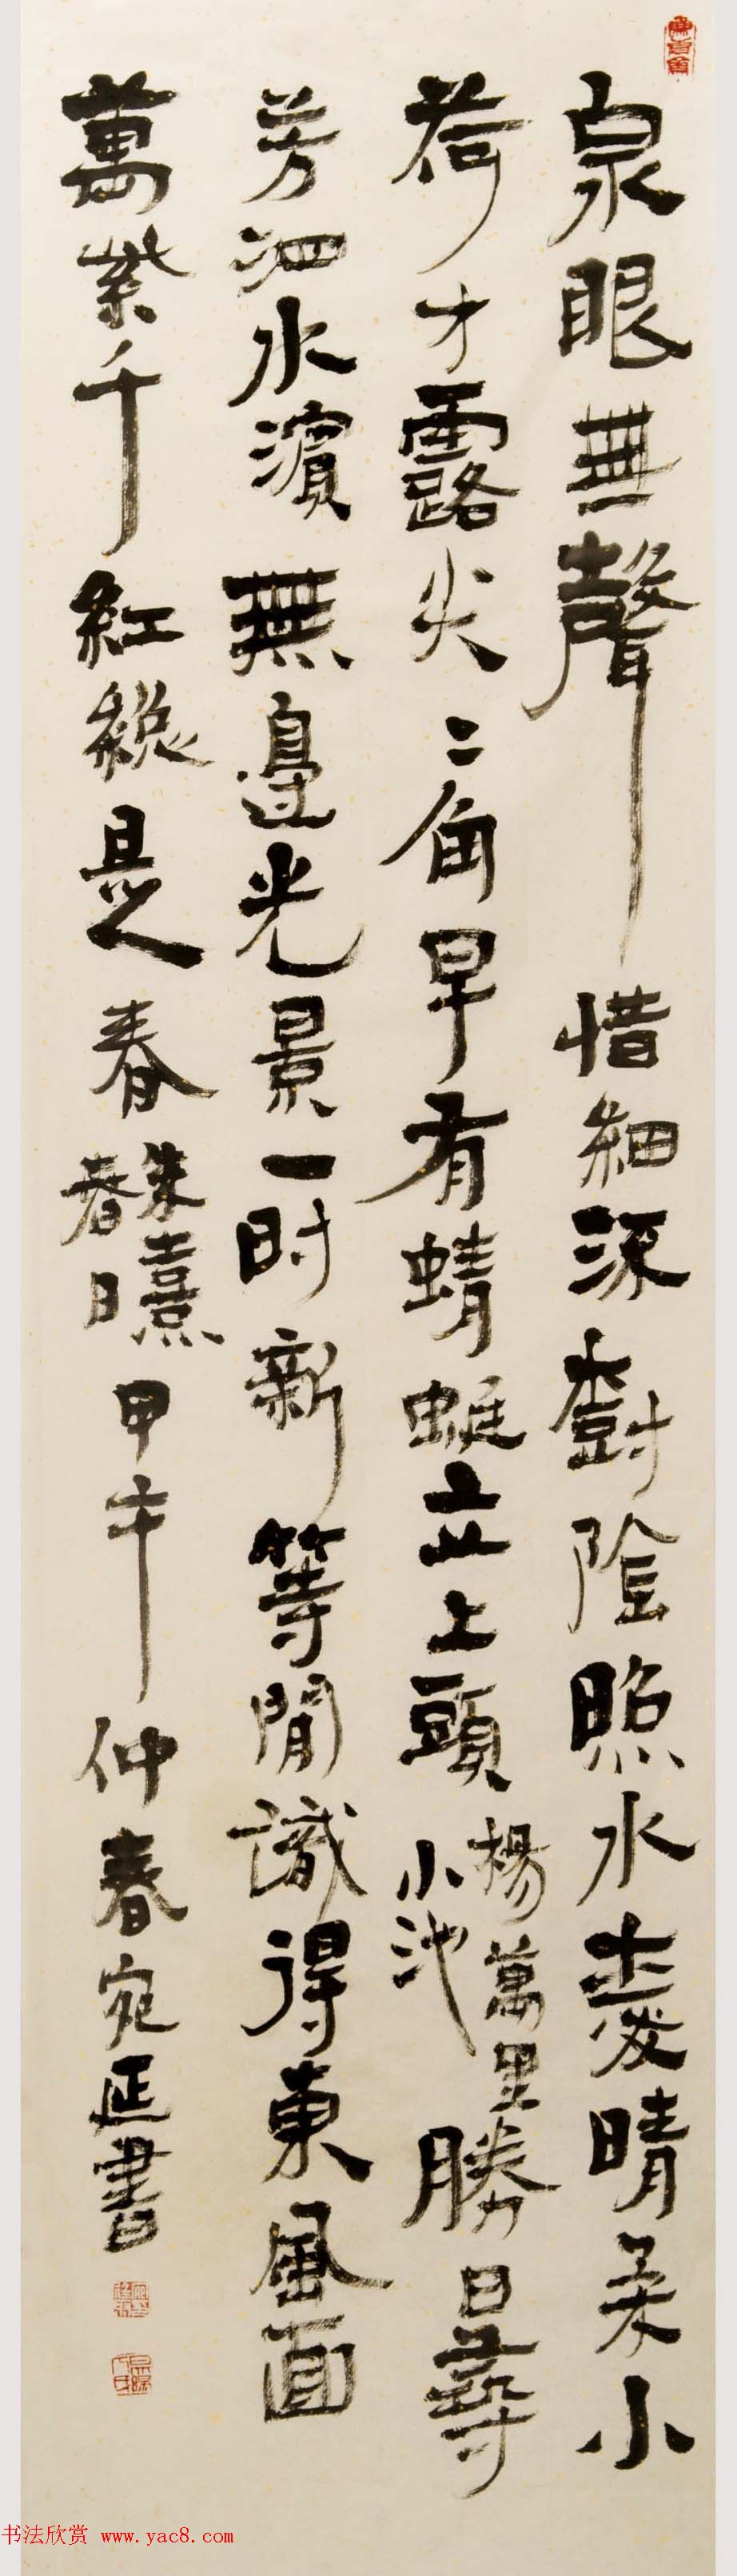 泉眼無聲惜細流樹陰照水愛晴柔小
荷才露尖〻角早有蜻蜓立上頭
楊萬里
小池
勝日尋
芳泗水濱無邊光景一时新等閒識得東風面
萬紫千紅總是春
朱熹
春日
甲午仲春宛延書
书法欣赏 www.yac8.com